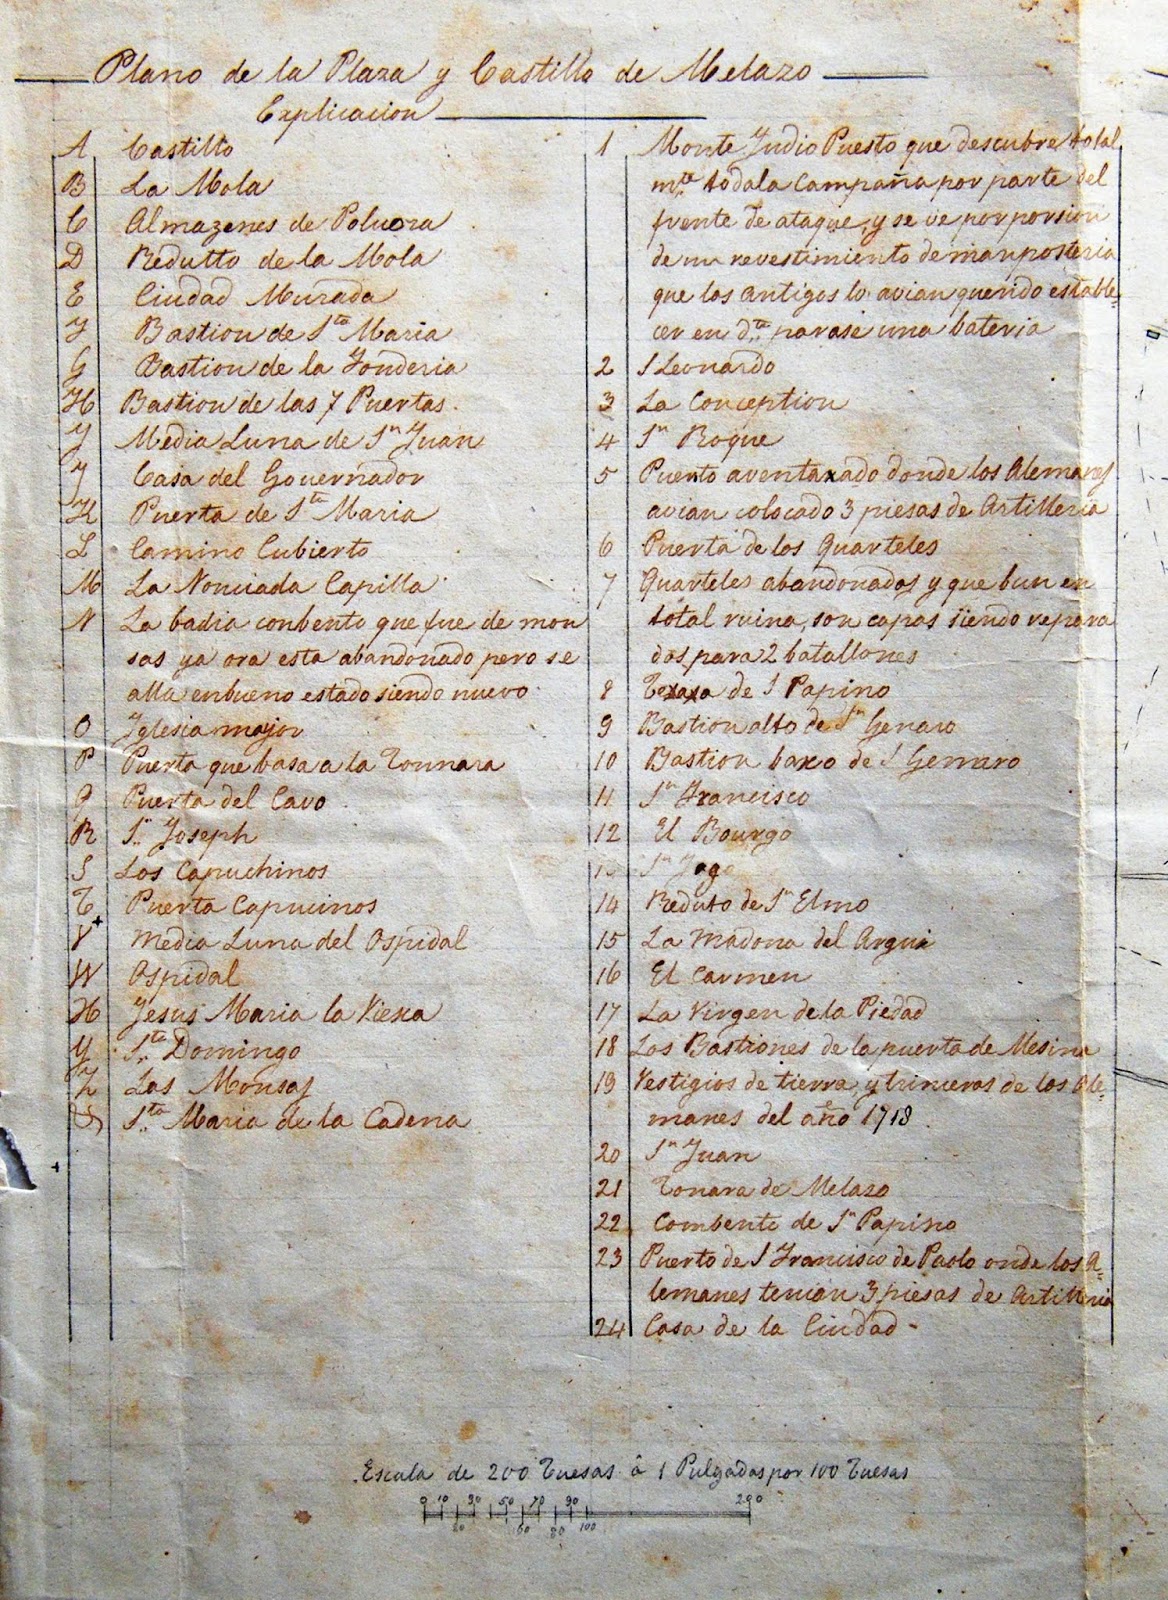 Plano de la Plaza y Castillo de Melazo
Explicacion
A Castillo
B La Mola
C Almazenes de Poluora
D Redutto de la Mola
E Ciudad Murada
F Bastion de Sta Maria
G Bastion de la Fonderia
H Bastion de las 7 Puertas.
Y Media Luna de Sn Juan
J Casa del Governador
K Puerta de Sta Maria
L Camino Cubierto
M La Nonciada Capilla
N La badia conbento que fue de mon
sas ya ora esta abandonado pero se
alla enbueno estado siendo nuevo
O Yglesia major
P Puerta que basa a la Tonnara
Q Puerta del Cavo
R Sn Joseph
S Los Capuchinos
T Puerta Capucinos
V Media Luna del Ospidal
W Ospidal
H Jesus Maria la Viexa
Y Sto Domingo
Z Las Monsas
& Sta Maria de la Cadena
1 Monte Judio Puesto que descubre total
mte toda la Campaña por parte del
frente de ataque, y se ve por porsion
de un revestimiento de manposteria
que los antigos lo avian querido estable-
cer en dta parase una bateria
2 S Leonardo
3 La Conception
4 Sn Roque
5 Puerto aventaxado donde los Alemanes
avian colocado 3 piesas de Artilleria
6 Puerta de los Quarteles
7 Quarteles abandonados y que bun en
total ruina, son capas siendo repara
dos, para 2 batallones
8 de S Papino
9 Bastion alto de Sn Genaro
10 Bastion baxo de S Genraro
11 Sn Francisco
12 El Bourgo
Sn Jago
14 Reduto de Sn Elmo
15 La Madona del Arqui
16 El Carmen
17 La Virgen de la Piedad
18 Los Bastiones de la puerta de Mesina
19 Vestigios de tierra, y trinceras de los Ale-
manes del año 1718.
20 Sn Juan
21 Tonara de Melaso
22 Combento de Sn Papino
23 Puerto de S Francisco de Paolo onde los A-
lemanes tenian 3 piesas de Artilleria
24 Casa de la Ciudad
Escala de 200 Tuesas â 1 Pulgadas por 100 Tuesas
0 10 30 50 70 90 200
20 60 80 100